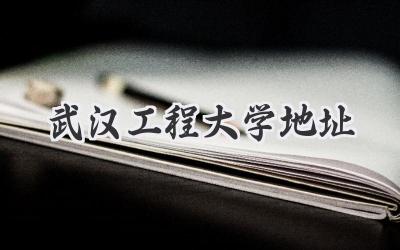 武汉工程大学地址